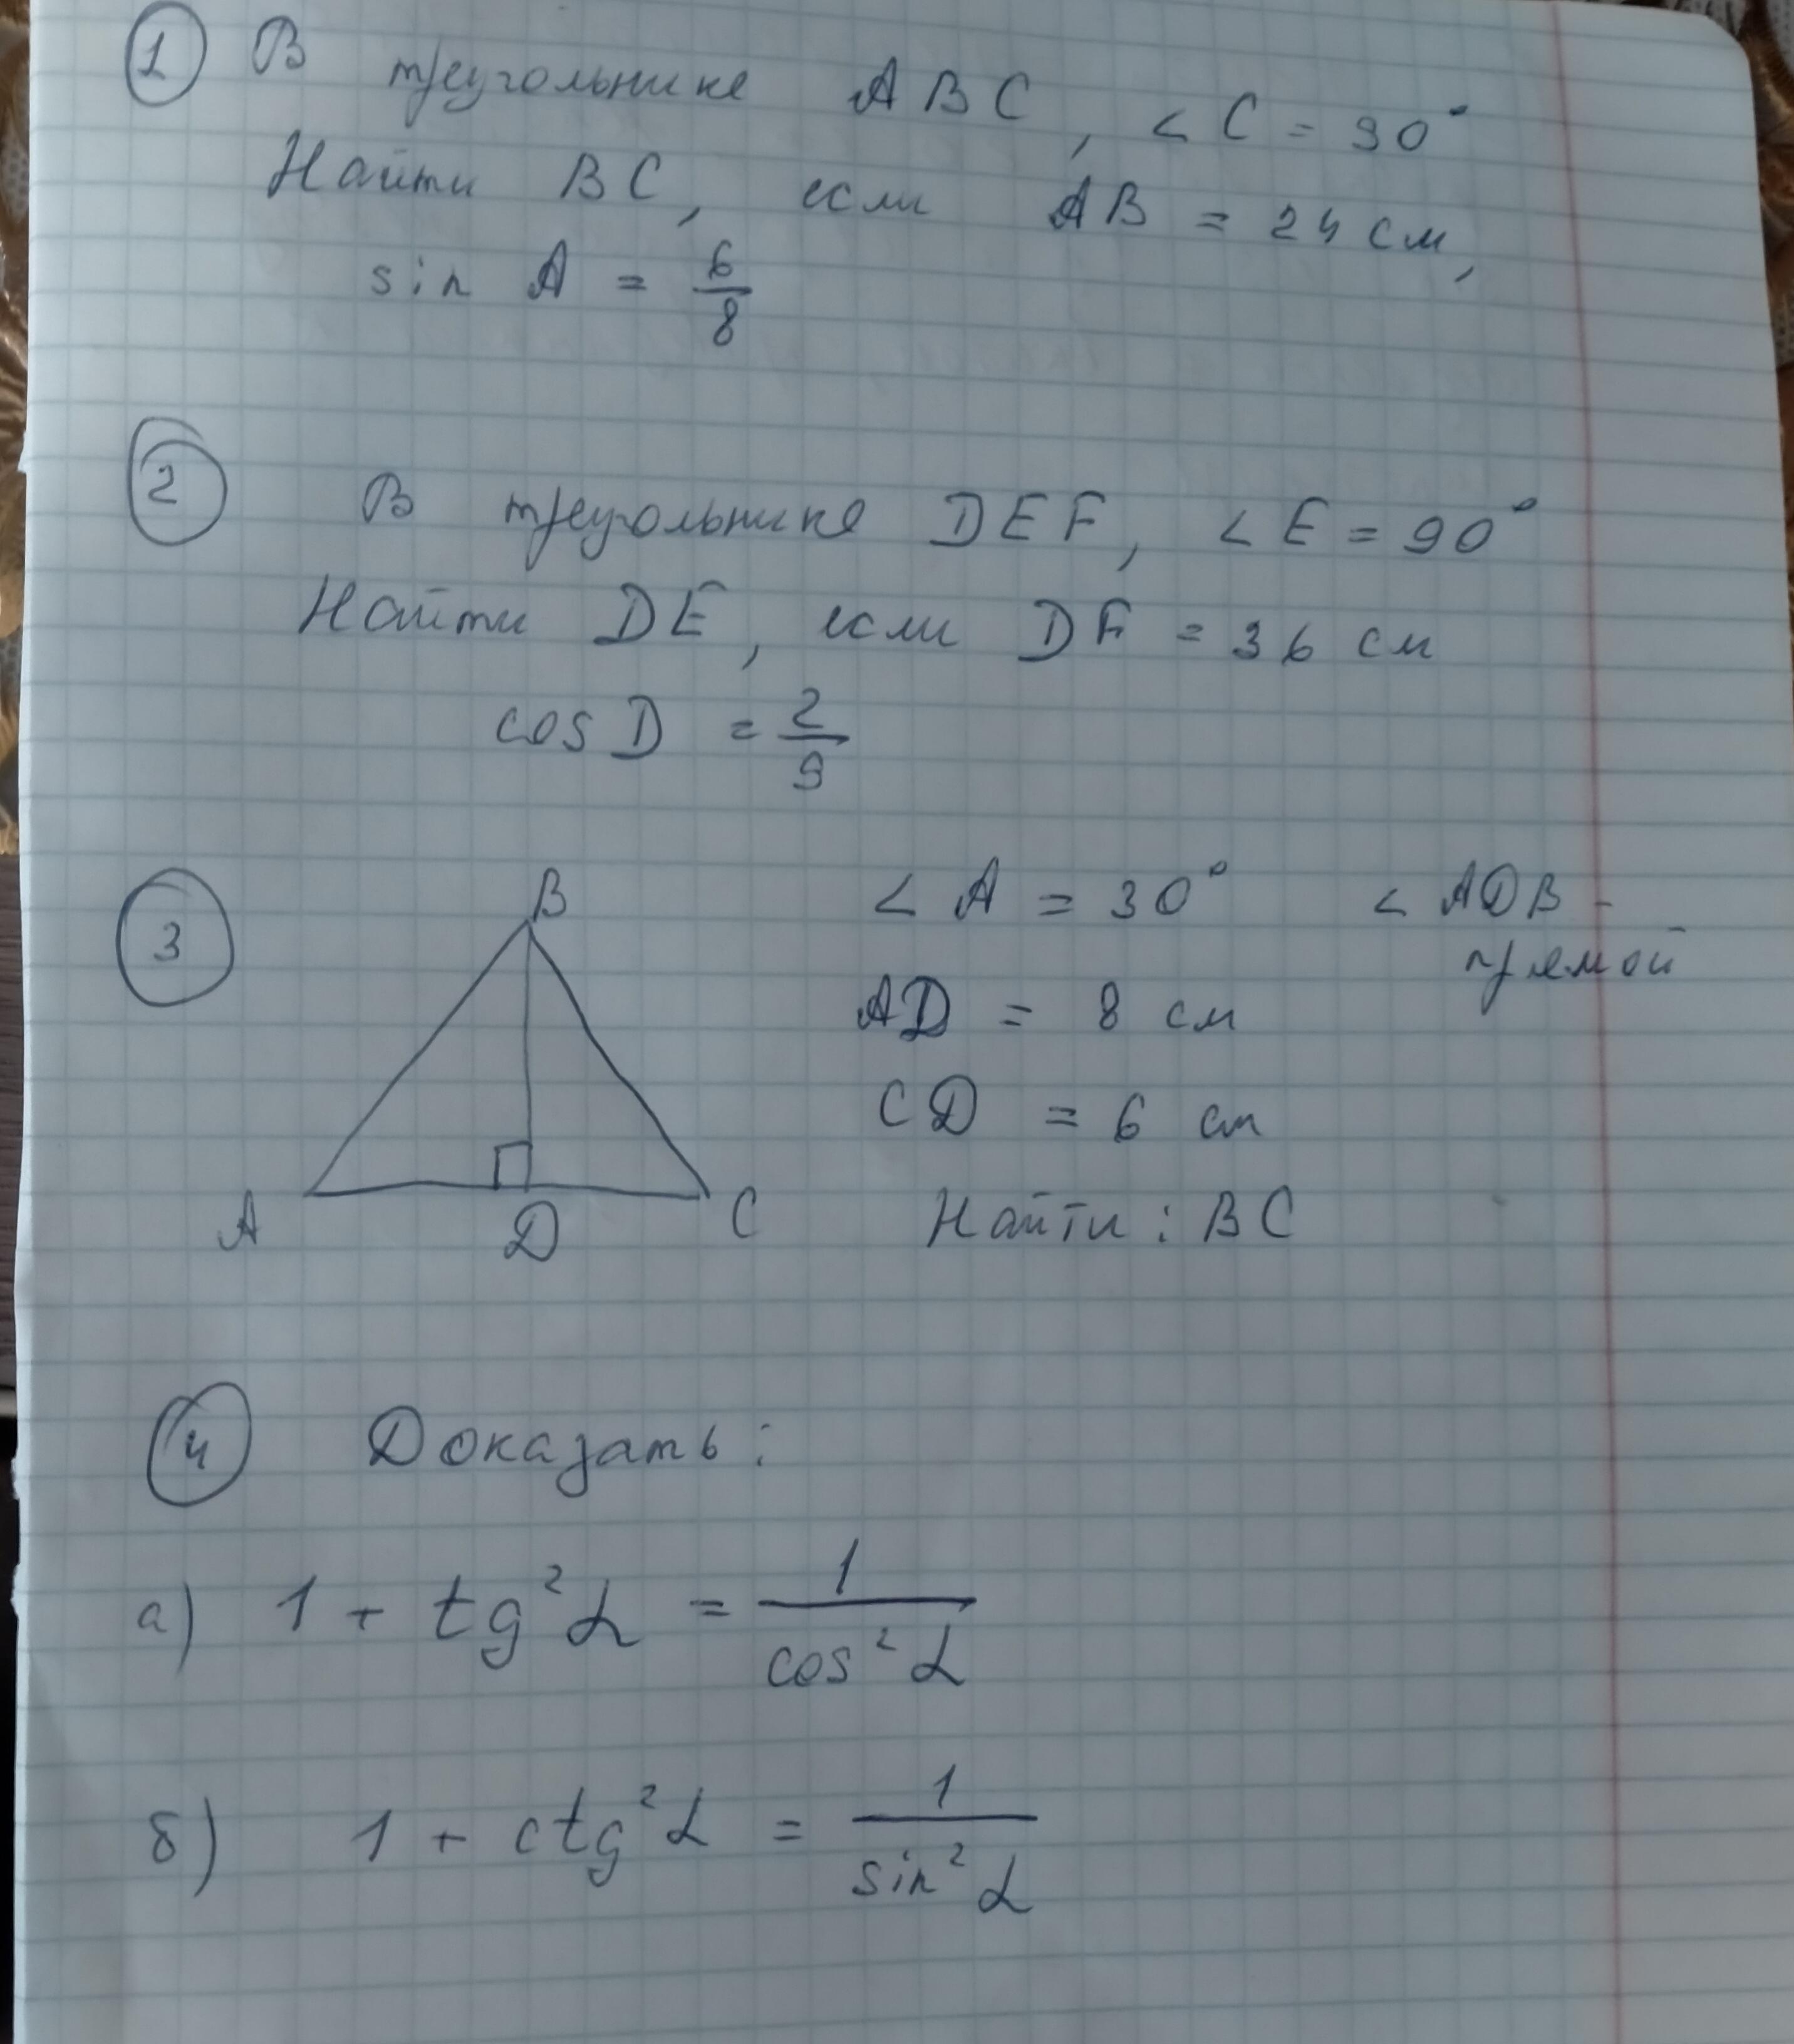 1 В треугольнике ABC, ∠C = 90°
Найти BC, если AB = 24 см,
sin A = 6/8
2 В треугольнике DEF, ∠E = 90°
Найти DE, если DF = 36 см
cos D = 2/9
3 B ∠A = 30° ∠ADB -
прямой
AD = 8 см
CD = 6 см
A D C Найти: BC
4 Доказать:
а) 1 + tg²α = 1/cos²α
б) 1 + ctg²α = 1/sin²α